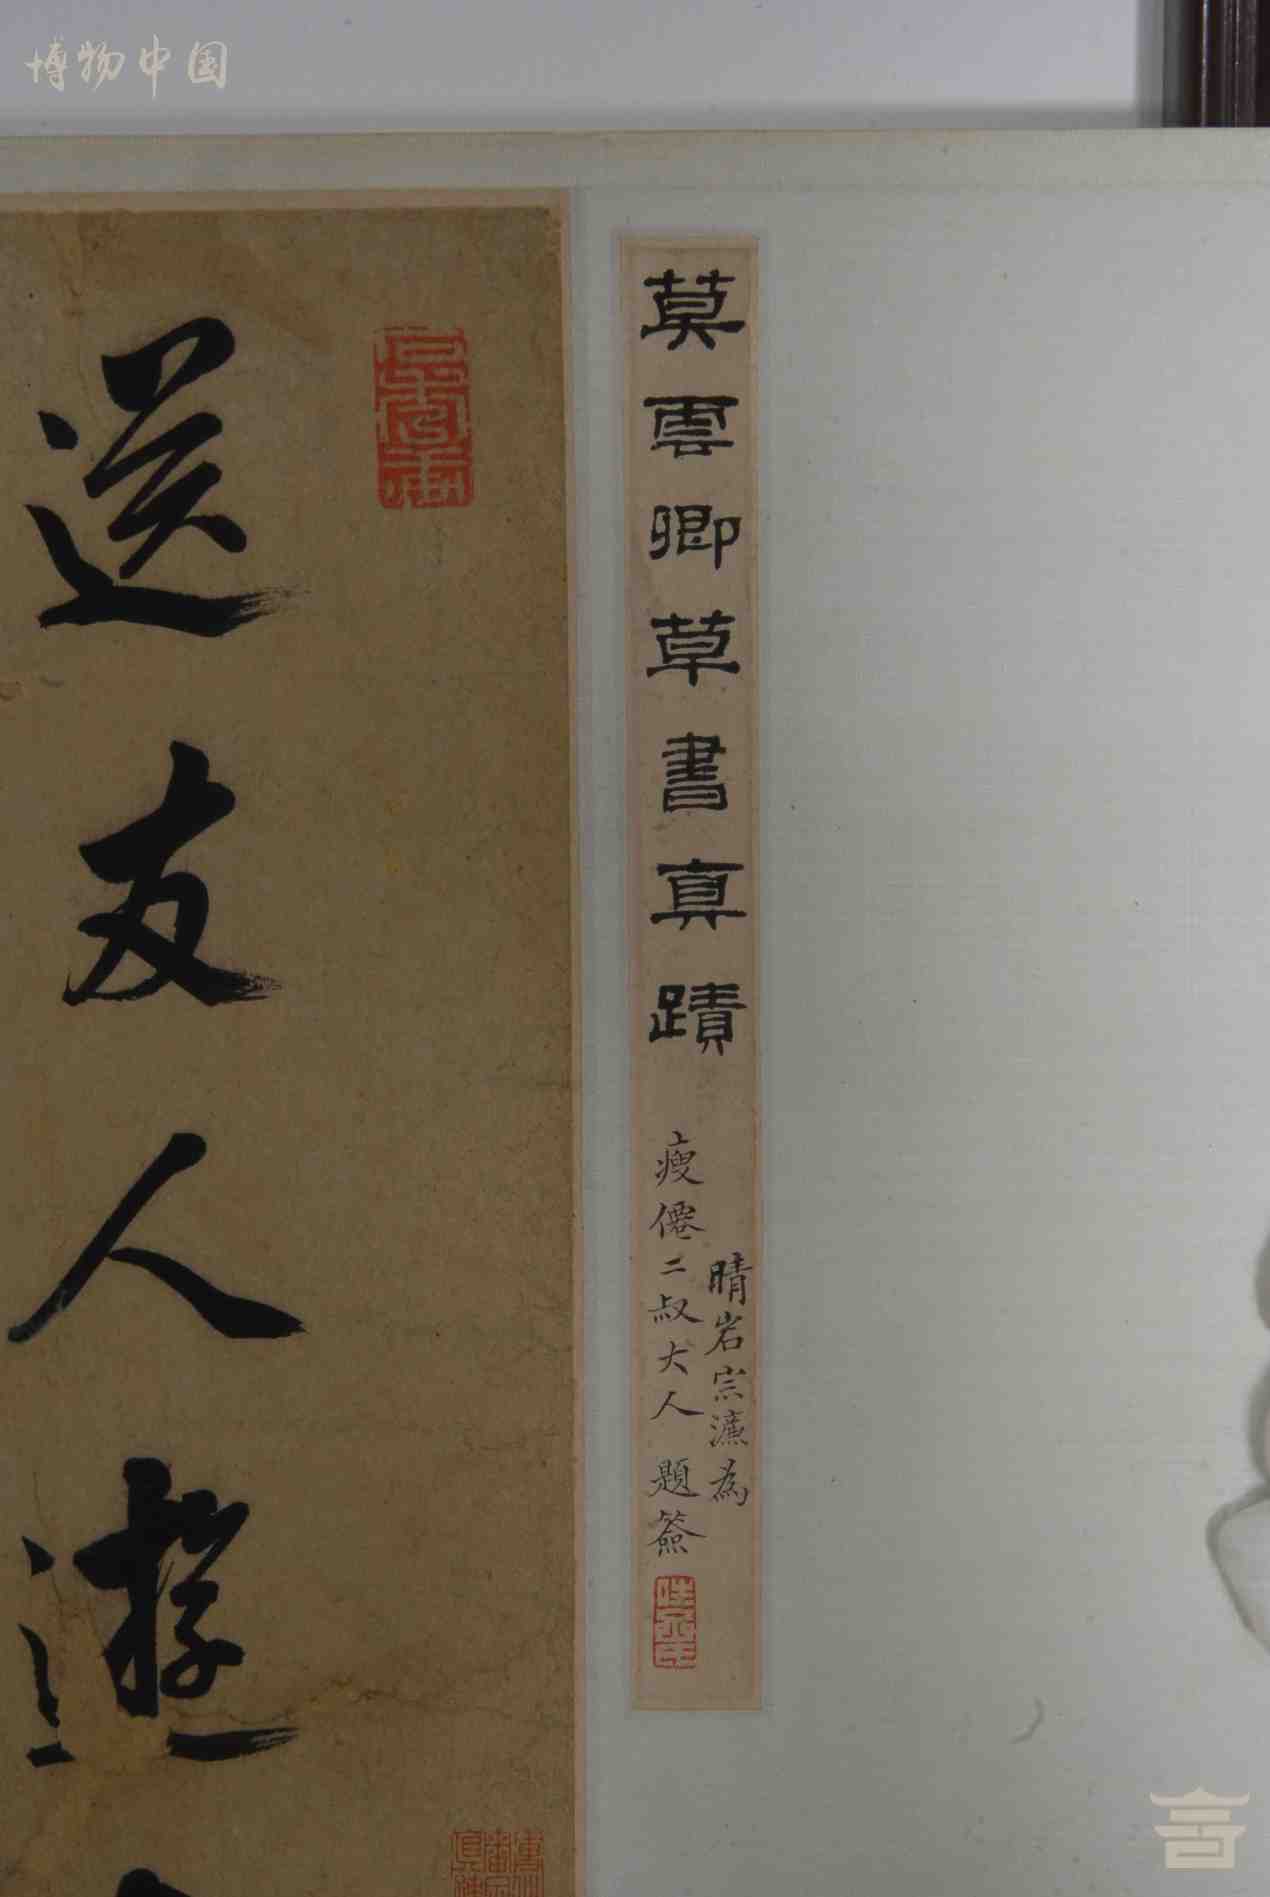 博物中国
莫雲卿草書真蹟
晴岩宗濂為
瘦僊二叔大人題簽
送友人遊